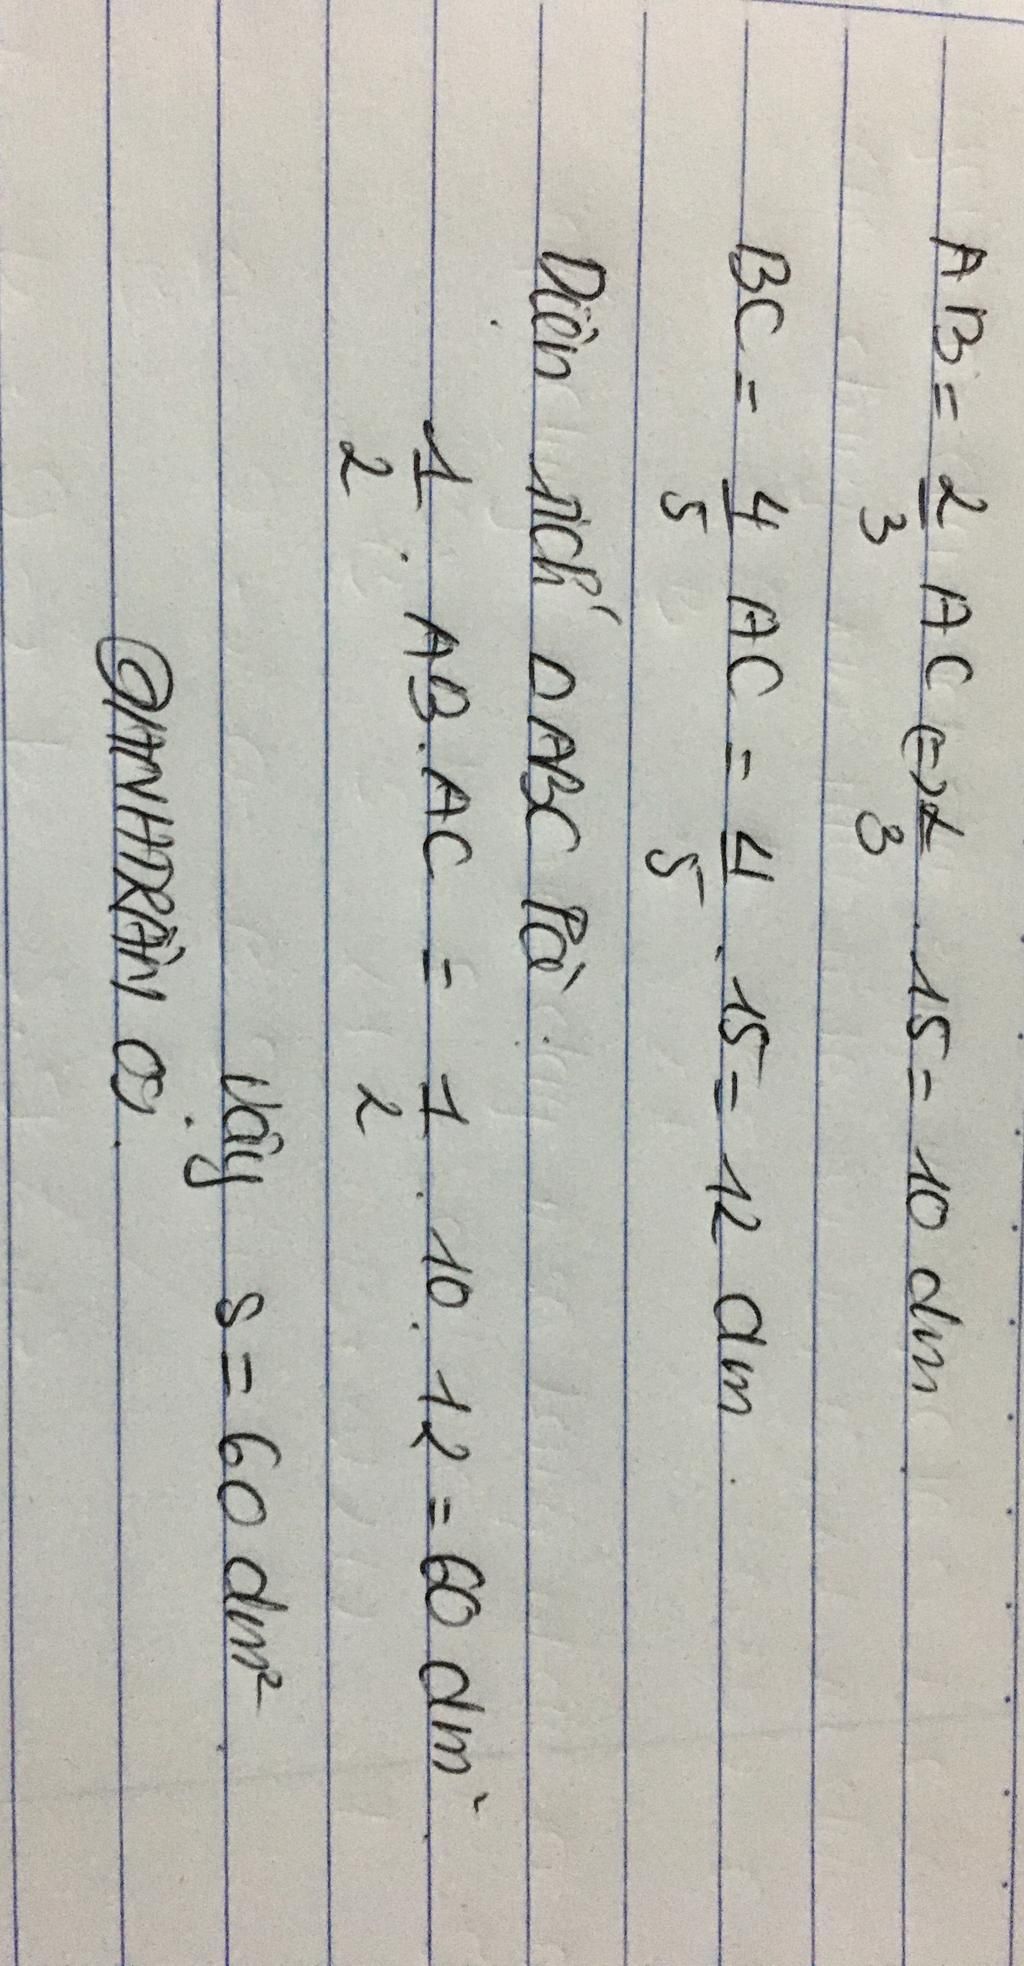 AB = 2/3 AC <=> 2/3 . 15 = 10 dm
BC = 4/5 AC = 4/5 . 15 = 12 dm
Diện tích △ABC là
1/2 . AB . AC = 1/2 . 10 . 12 = 60 dm²
Vậy S = 60 dm²